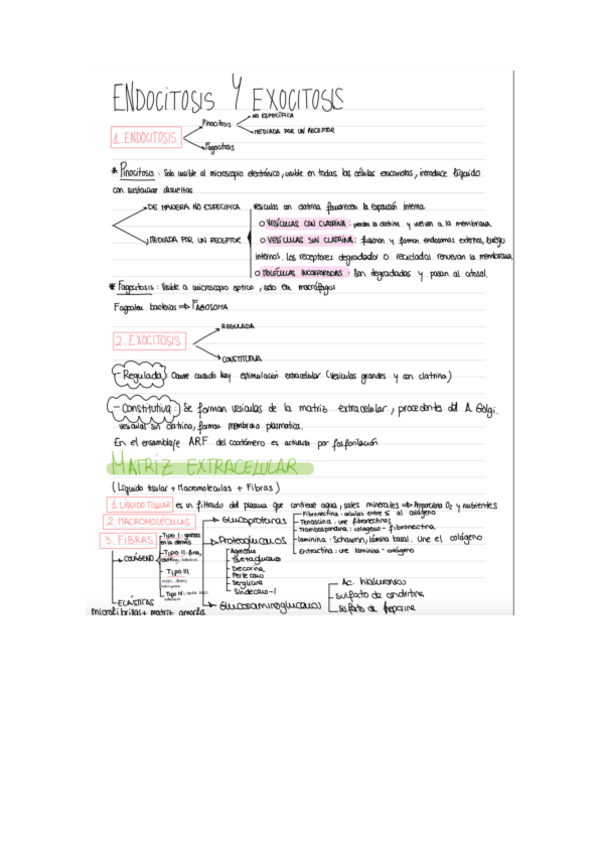 ENDOCITOSIS Y EXOCITOSIS
1. ENDOCITOSIS
Pinocitosis
NO ESPECÍFICA
MEDIADA POR UN RECEPTOR
Fagocitosis
* Pinocitosis: Solo visible al microscopio electrónico, visible en todas las células eucariotas, introduce líquido
con sustancias disueltas
DE MANERA NO ESPECIFICA
MEDIADA POR UN RECEPTOR
Vesículas con clatrina favorecen la expansión interna.
O VESÍCULAS CON CLATRINA: pierden la clatrina y vuelven a la membrana
O VESÍCULAS SIN CLATRINA: fusionan y forman endosomas externos, luego
internos. Los receptores degradados o reciclados renuevan la membrana
O MOLÉCULAS INCORPORADAS: Son degradadas y pasan al citosol.
* Fagocitosis: Visible a microscopio optico, solo en macrófagos
Fagocitan bacterias => FAGOSOMA
2. EXOCITOSIS
REGULADA
CONSTITUTIVA
- Regulada: Ocurre cuando hay estimulación extracelular (vesículas grandes y con clatrina)
- Constitutiva: Se forman vesiculas de la matriz extracelular, procedentes del A. Golgi.
vesiculas sin clatrina, forman membrana plasmatica.
En el ensamblaje ARF del coatómero es activada por fosforilación
MATRIZ EXTRACELULAR
(Líquido tisular + Macromoleculas + Fibras)
1. LÍQUIDO TISULAR es un filtrado del plasma que contiene agua, sales minerales => Proporciona O2 y nutrientes
2. MACROMOLÉCULAS
Glucoproteinas
Fibronectina: celulas entre sí al colágeno
Tenascina: une fibronectinas
Trombospondina: colageno - fibronectina
laminina: Schwann, lámina basal. Une el colágeno
Entactina: une laminina - colágeno
Proteoglucanos
Agrecano
Betaglucano
Decorina
Perlecano
Serglicina
Sindecano-1
Glucosaminoglucanos
Ac. hialuronico
sulfato de condritina
sulfato de heparina
3. FIBRAS
COLÁGENO
Tipo I: gruesas
en la dermis
Tipo II: fina,
Tipo III
Tipo IV
ELÁSTICAS
Microfibrillas + matriz amorfa